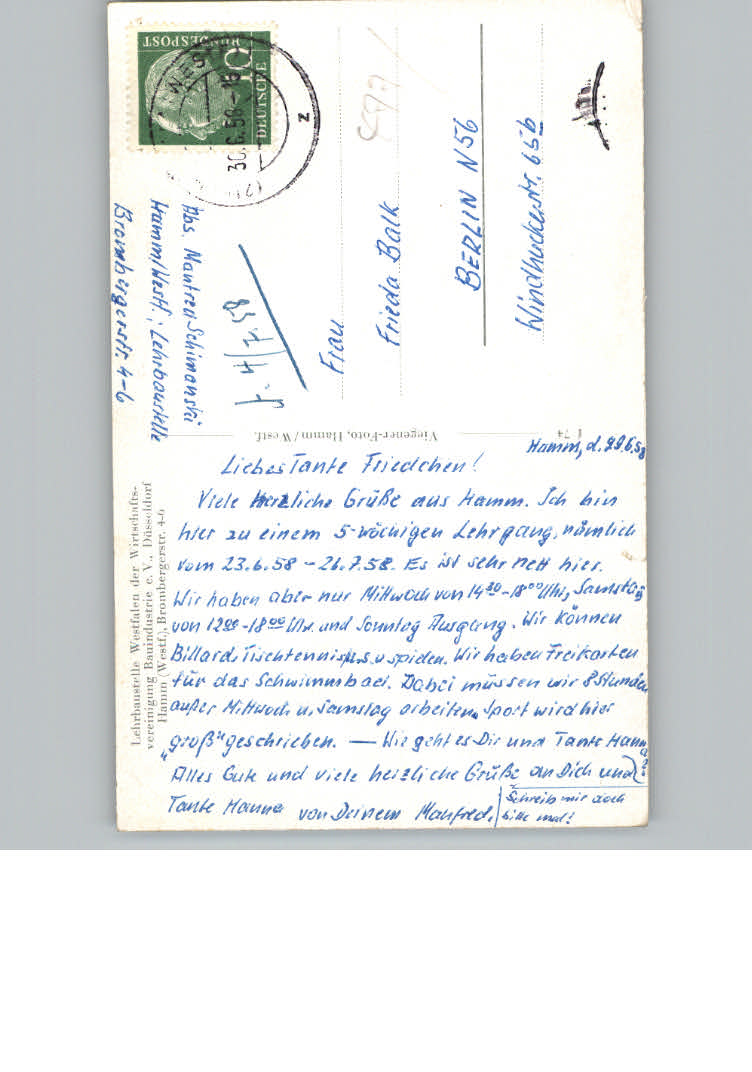 DEUTSCHE
BUNDESPOST
10
WEST
30.6.58-16
z
Abs. Manfred Schimanski
Hamm/Westf.; Lehrbaustelle
Brombergerstr. 4-6
f. 4/7.58
Frau
Frieda Balk
BERLIN N56
Windhuckerstr. 65b
Viegener-Foto, Hamm/Westf.
I 74
Lehrbaustelle Westfalen der Wirtschafts-
vereinigung Bauindustrie e. V., Düsseldorf
Hamm (Westf.), Brombergerstr. 4-6
Hamm, d. 29.6.58
Liebes Tante Friedchen!
Viele herzliche Grüße aus Hamm. Ich bin
hier zu einem 5-wöchigen Lehrgang, nämlich
vom 23.6.58 - 26.7.58. Es ist sehr nett hier.
Wir haben aber nur Mittwoch von 14³⁰-18⁰⁰ Uhr, Samstag
von 12⁰⁰-18⁰⁰ Uhr und Sonntag Ausgang. Wir können
Billard, Tischtennis u.s.w spielen. Wir haben Freikarten
für das Schwimmbad. Dabei müssen wir 8 Stunden
außer Mittwoch u. Samstag arbeiten. Sport wird hier
„groß“ geschrieben. — Wie geht es Dir und Tante Hanna?
Alles Gute und viele herzliche Grüße an Dich und
Tante Hanna von Deinem Manfred.
Schreib mir doch
bitte mal!